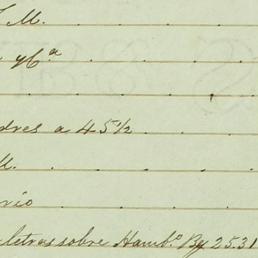 M.
yCª
dres a 45½
M.
rio
letras sobre Hambº By 25.31